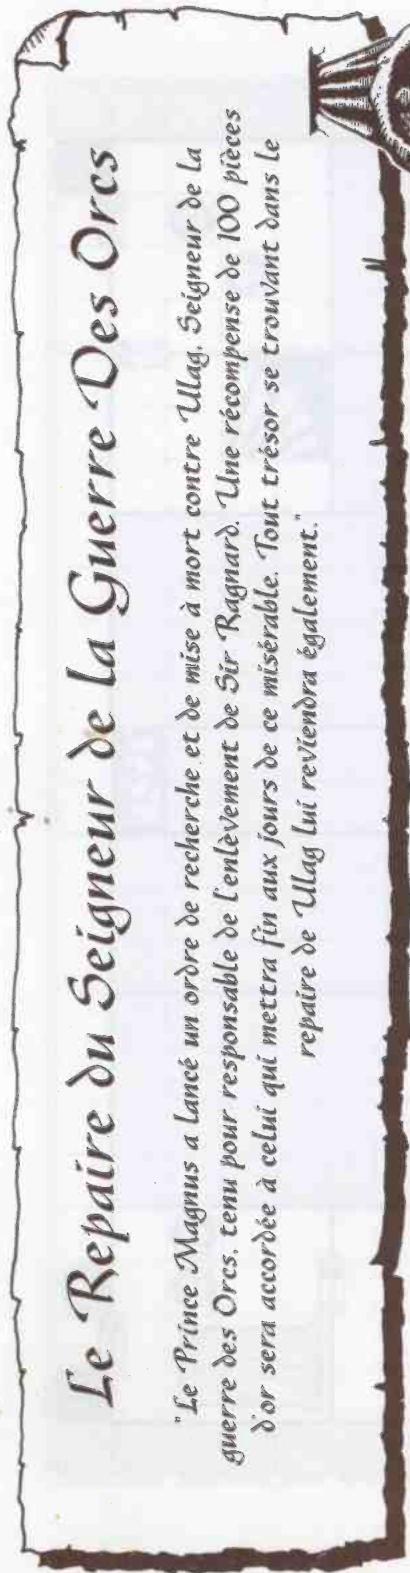 Le Repaire du Seigneur de la Guerre Des Orcs
"Le Prince Magnus a lancé un ordre de recherche et de mise à mort contre Ulag, Seigneur de la
guerre des Orcs, tenu pour responsable de l'enlèvement de Sir Ragnard. Une récompense de 100 pièces
d'or sera accordée à celui qui mettra fin aux jours de ce misérable. Tout trésor se trouvant dans le
repaire de Ulag lui reviendra également."